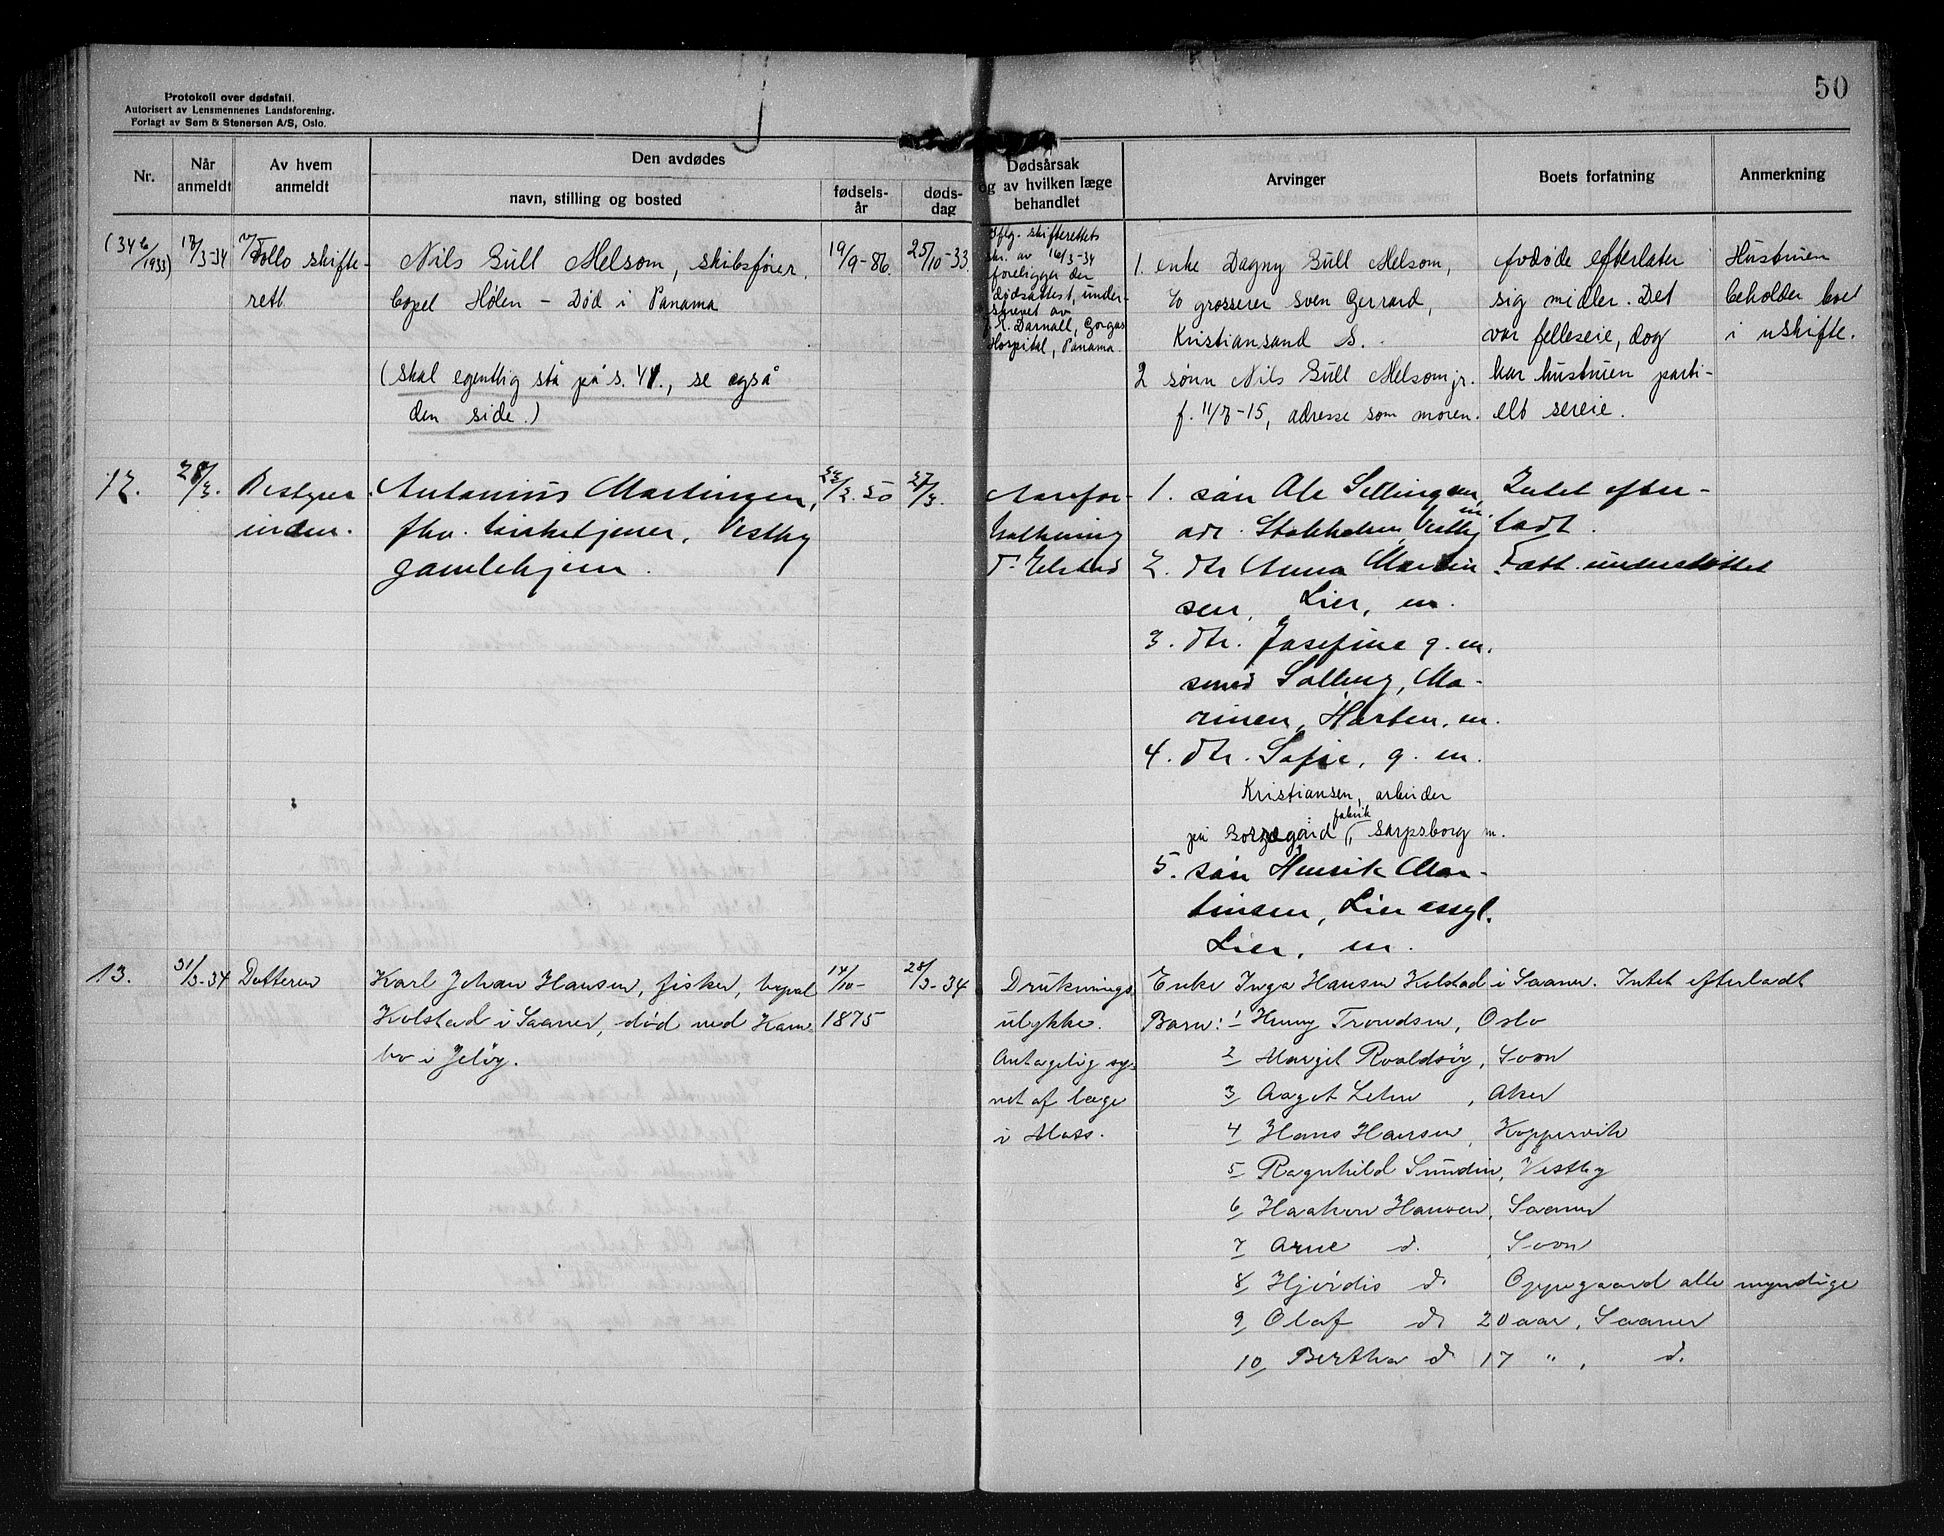 50
Protokoll over dødsfall.
Autorisert av Lensmennenes Landsforening.
Forlagt av Sem & Stenersen A/S, Oslo.
Nr.
Når anmeldt
Av hvem anmeldt
Den avdødes
navn, stilling og bosted
fødsels-år
døds-dag
Dødsårsak og av hvilken læge behandlet
Arvinger
Boets forfatning
Anmerkning
(34 b/1933)
17/3-34
Follo skifte-
rett
Nils Bull Melsom, skibsfører
bopel Hølen - Død i Panama
(skal egentlig stå på s. 41., se også
den side.)
19/9-86.
25/10-33.
Iflg. skifterettets
skr. av 16/3-34
foreligger der
dødsattest, under-
skrevet av
Darnall, Gorgas
Hospital, Panama.
1. enke Dagny Bull Melsom,
c/o grosserer Sven Gerrard,
Kristiansand S.
2 sønn Nils Bull Melsom jr.
f. 11/7-15, adresse som moren.
Avdøde efterlater
sig midler. Det
var felleseie, dog
har hustruen parti-
elt særeie.
Hustruen
beholder boet
i uskifte.
12.
28/3.
Bestyrer
inden.
Antonius Martinsen,
fhv. kirketjener, Vestby
gamlehjem.
50
27/3.
Aarefor-
kalkning
dr Elstad
1. søn Ole
adr. Stokholm, Vestby m
2. dtr Anna Martin
sen, Lier, m.
3. dtr. Josefine g. m.
smed Solberg,
m.
4. dtr. Sofie, g. m.
Kristiansen, arbeider
på Borregård fabrik, Sarpsborg m.
5. søn Henrik Mar-
tinsen, Lier asyl.
Lier, m.
Intet efter-
ladt.
Fatt. understøttet
13.
31/3-34
Datteren
Karl Johan Hansen, fisker, bopæl
Kolstad i Saaner, død ved Kam
bo i Jeløy.
14/10-
1875
28/3-34
Druknings
ulykke.
Antagelig sy-
net af læge
i Moss.
Enke Inga Hansen Kolstad i Saaner. Intet efterladt
Barn: 1 Henny Trondsen, Oslo
2 Margit Roaldsøy, Soon
3 Aagot Lehn, Aker
4 Hans Hansen, Koppervik
5 Ragnhild Sundin, Vestby
6 Haakon Hansen, Saaner
7 Arne d. , Soon
8 Hjørdis d. Oppegaard alle myndige
9 Olaf d. 20 aar, Saaner
10 Bertha d. 17 " , d.